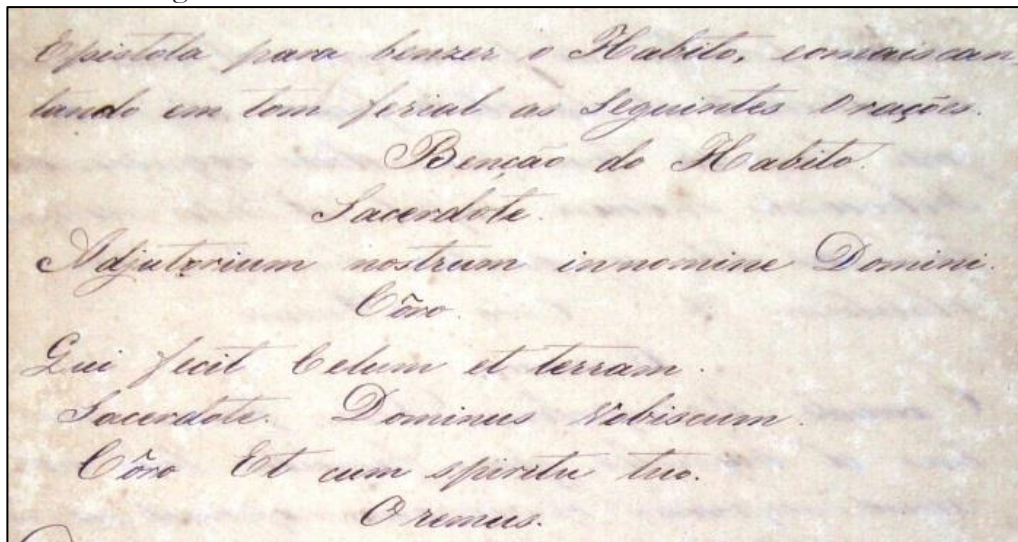 Epistola para benzer o Habito, eomais can
tando em tom ferial as Seguintes Orações.
Benção do Habito.
Sacerdote.
Adjutorium nostrum innomine Domini.
Côro.
Qui fecit Celum et terram.
Sacerdote. Dominus Vobiscum.
Côro Et cum spiritu tuo.
Oremus.